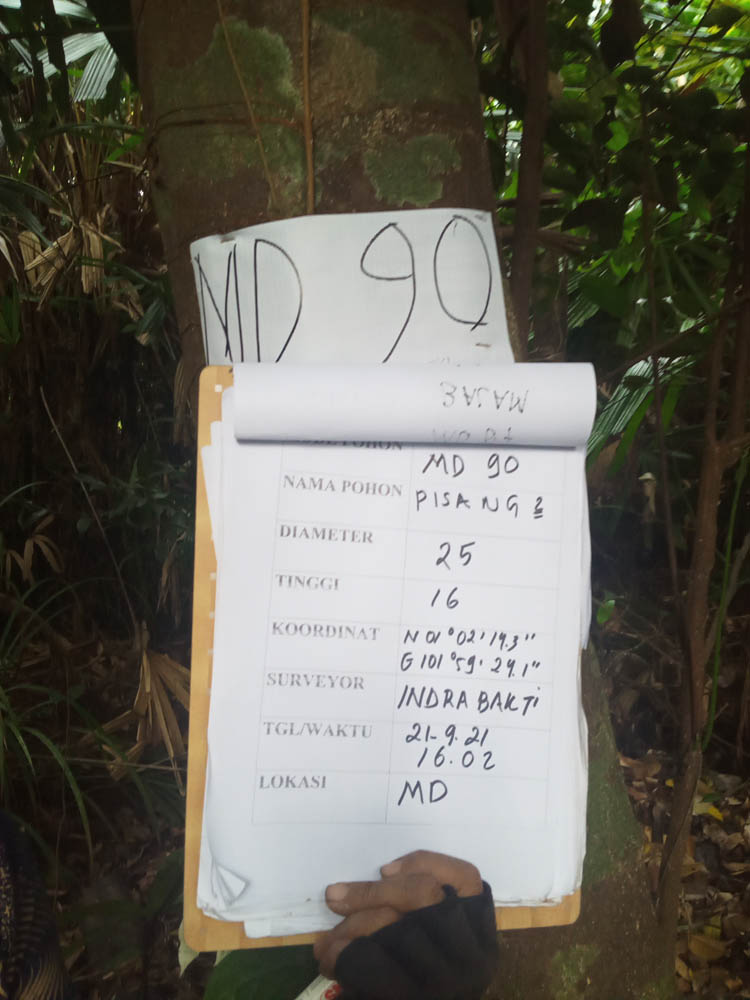 MD 90
MASAB
KODE POHON MD 90
NAMA POHON PISANG 2
DIAMETER 25
TINGGI 16
KOORDINAT N 01°02'14.3"
G 101°59'29.1"
SURVEYOR INDRA BAKTI
TGL/WAKTU 21-9.21
16.02
LOKASI MD